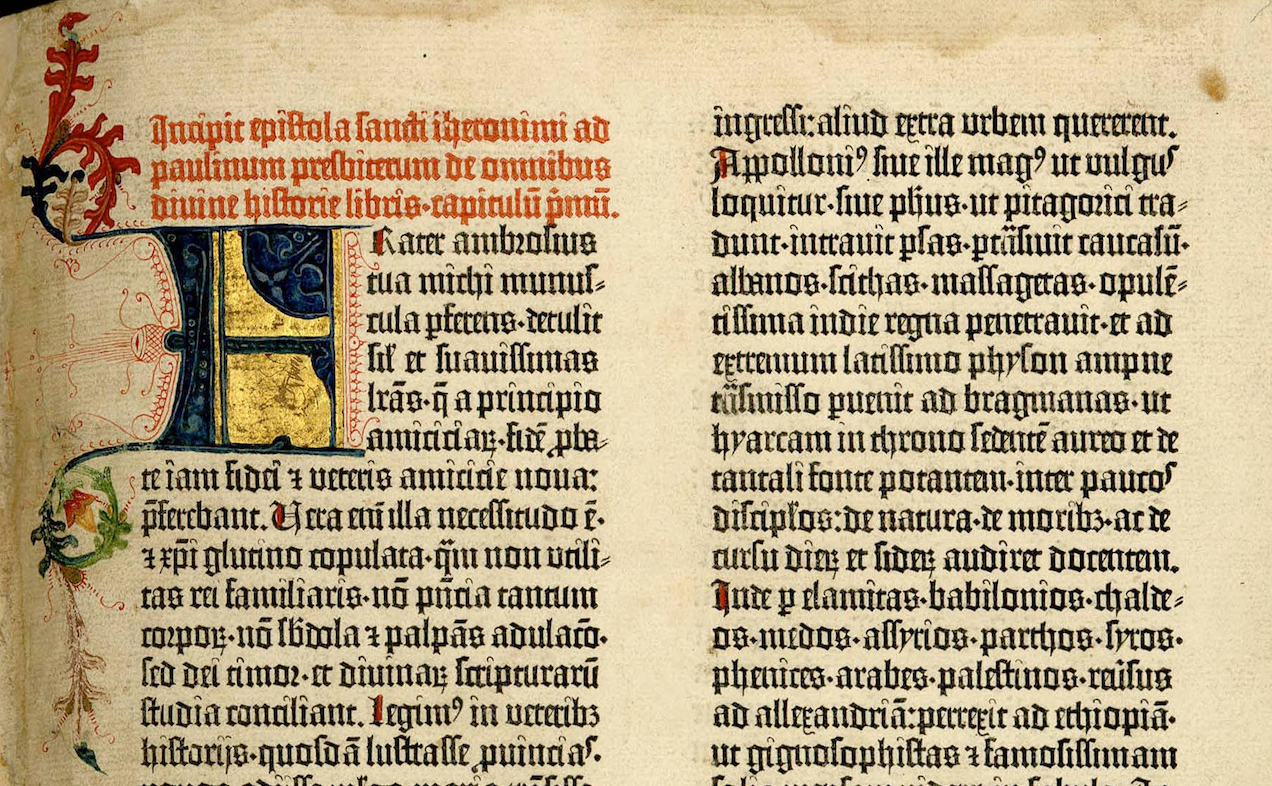 Incipit epistola sancti iheronimi ad
paulinum presbiterum de omnibus
divine historie libris·capitulū p̄mū.
Frater ambrosius
tua michi munus-
cula ꝑferens·detulit
sil̄ et suavissimas
lr̄as·q̄ a principio
amiciciaꝝ·fidē ꝓba-
te iam fidei ⁊ veteris amicicie nova:
p̄ferebant. Vera em̄ illa necessitudo ē·
⁊ xp̄i glutino copulata·qm̄ non utili-
tas rei familiaris·nō pn̄cia tantum
corpoꝝ·nō sb̄dola ⁊ palpās adulac̄o·
sed dei timor·et divinaꝝ scripturarū
studia conciliant. Legimꝰ in veteribꝫ
historijs·quosdā lustrasse ꝓuincias·
ingressi:aliud extra urbem quererent.
Appolloniꝰ sive ille magꝰ ut vulgus
loquitur·sive ph̄us·ut pitagorici tra-
dunt·intravit ꝑsas·ꝑtrāsivit caucasū·
albanos·scithas·massagetas·opulē-
tissima indie regna penetravit·et ad
extremum latissimo physon ampne
trāsmisso ꝑvenit ad bragmanas·ut
hyarcam in throno sedentē aureo et de
tantali fonte potantem·inter paucos
discipl̄os:de natura·de moribꝫ·ac de
cursu dieꝝ et sideꝝ audiret docentem.
Inde ꝑ elamitas·babilonios·chalde-
os·medos·assyrios·parthos·syros·
phenices·arabes·palestinos·rev̄sus
ad allexandriā:perrexit ad ethiopiā·
ut gignosophistas ⁊ famosissimam